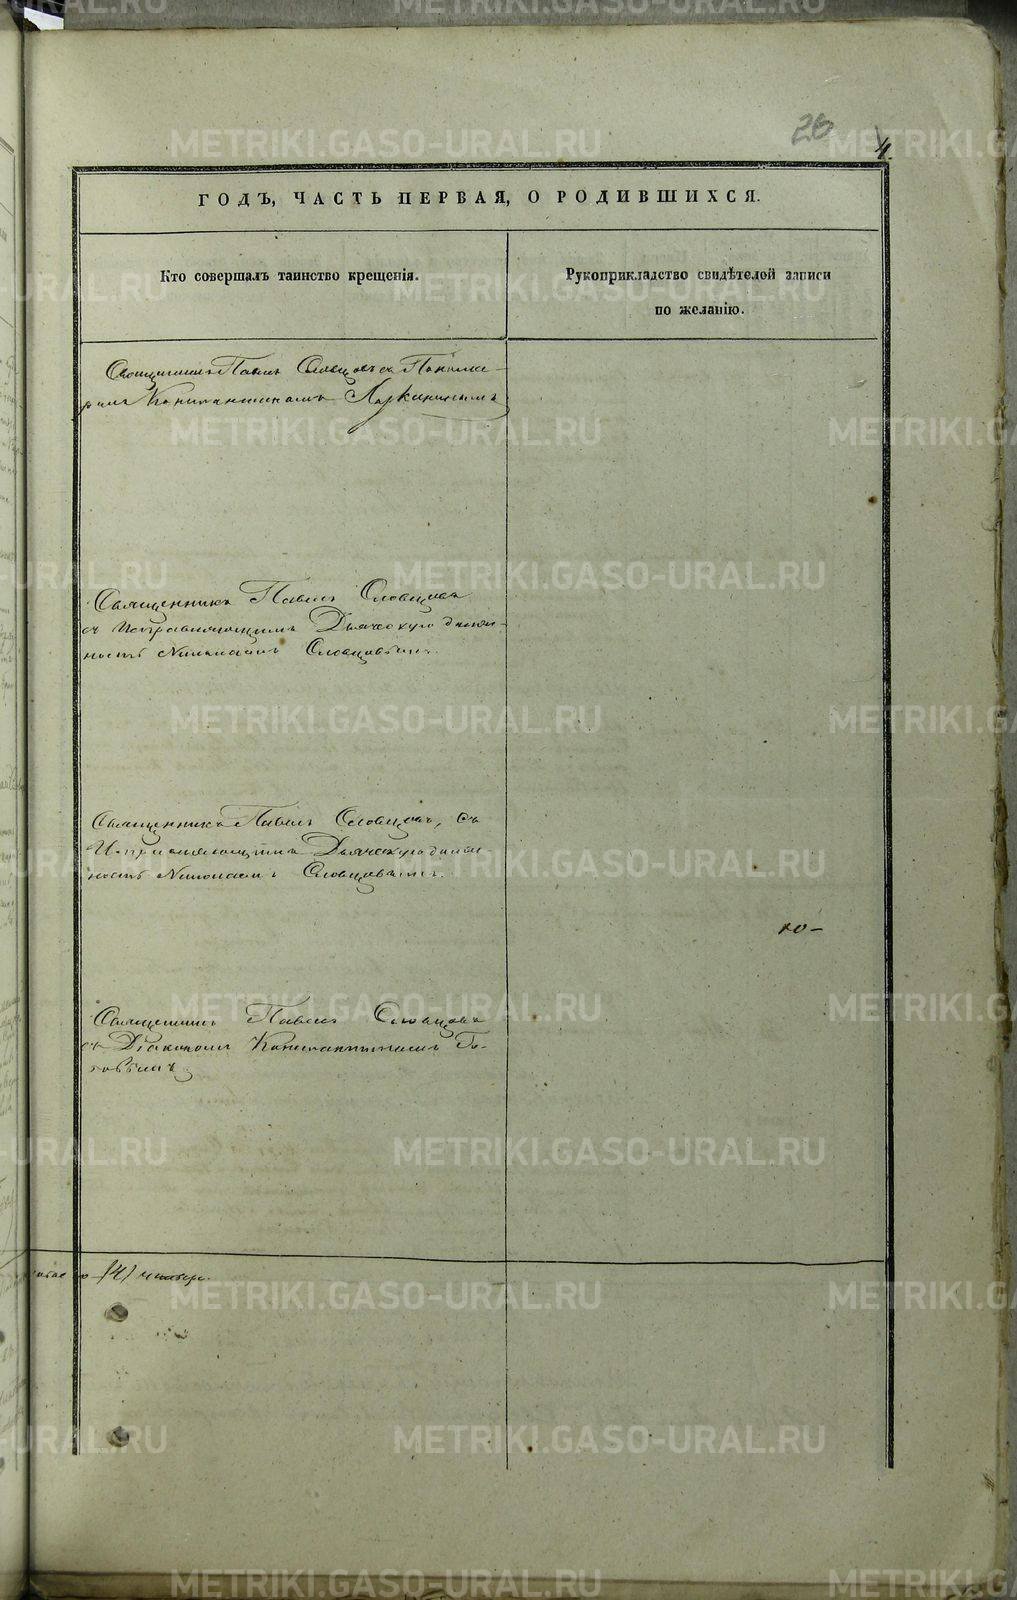 26
4.
ГОДЪ, ЧАСТЬ ПЕРВАЯ, О РОДИВШИХСЯ.
Кто совершалъ таинство крещенія.
Рукоприкладство свидѣтелей записи
по желанію.
Священникъ Павелъ Словцовъ съ Понома-
ремъ Константиномъ Ларкинымъ
Священникъ Павелъ Словцовъ
съ Исправляющимъ Дьяческую долж-
ность Николаемъ Словцовымъ.
Священникъ Павелъ Словцовъ, съ
Исправляющимъ Дьяческую долж-
ность Николаемъ Словцовымъ.
Священникъ Павелъ Словцовъ
съ Діакономъ Константиномъ
/4/ четыре.
METRIKI.GASO-URAL.RU